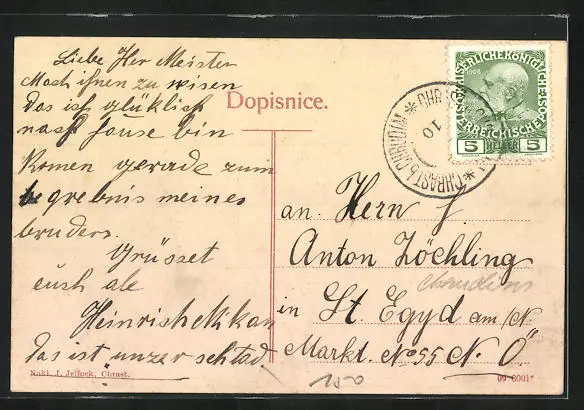 Liebe Her Meister
Mach ihnen zu wisen
Das ich glüklich
nach hause bin
Komen gerade zum
begrebnis meines
bruders.
Grüsset
euch ale
Das ist unzer schtad
Nákl. J. Jelínek, Chrast.
Dopisnice.
CHRAST b. CHRUDIM
10
5 HELLER 5
an. Hern J.
Anton Zöchling
in St. Egyd am/N.
Markt. No 55 N. Ö
chrudim
150
09 6001